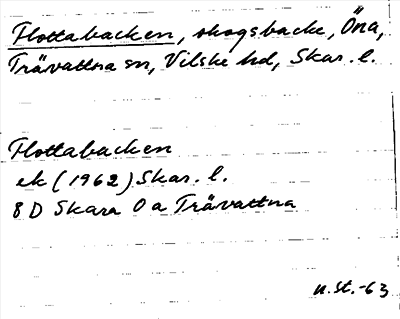 Flottabacken, skogsbacke, Öna,
Trävattna sn, Vilske hd, Skar. l.
Flottabacken
ek (1962) Skar. l.
8 D Skara 0 a Trävattna
n. St. -63